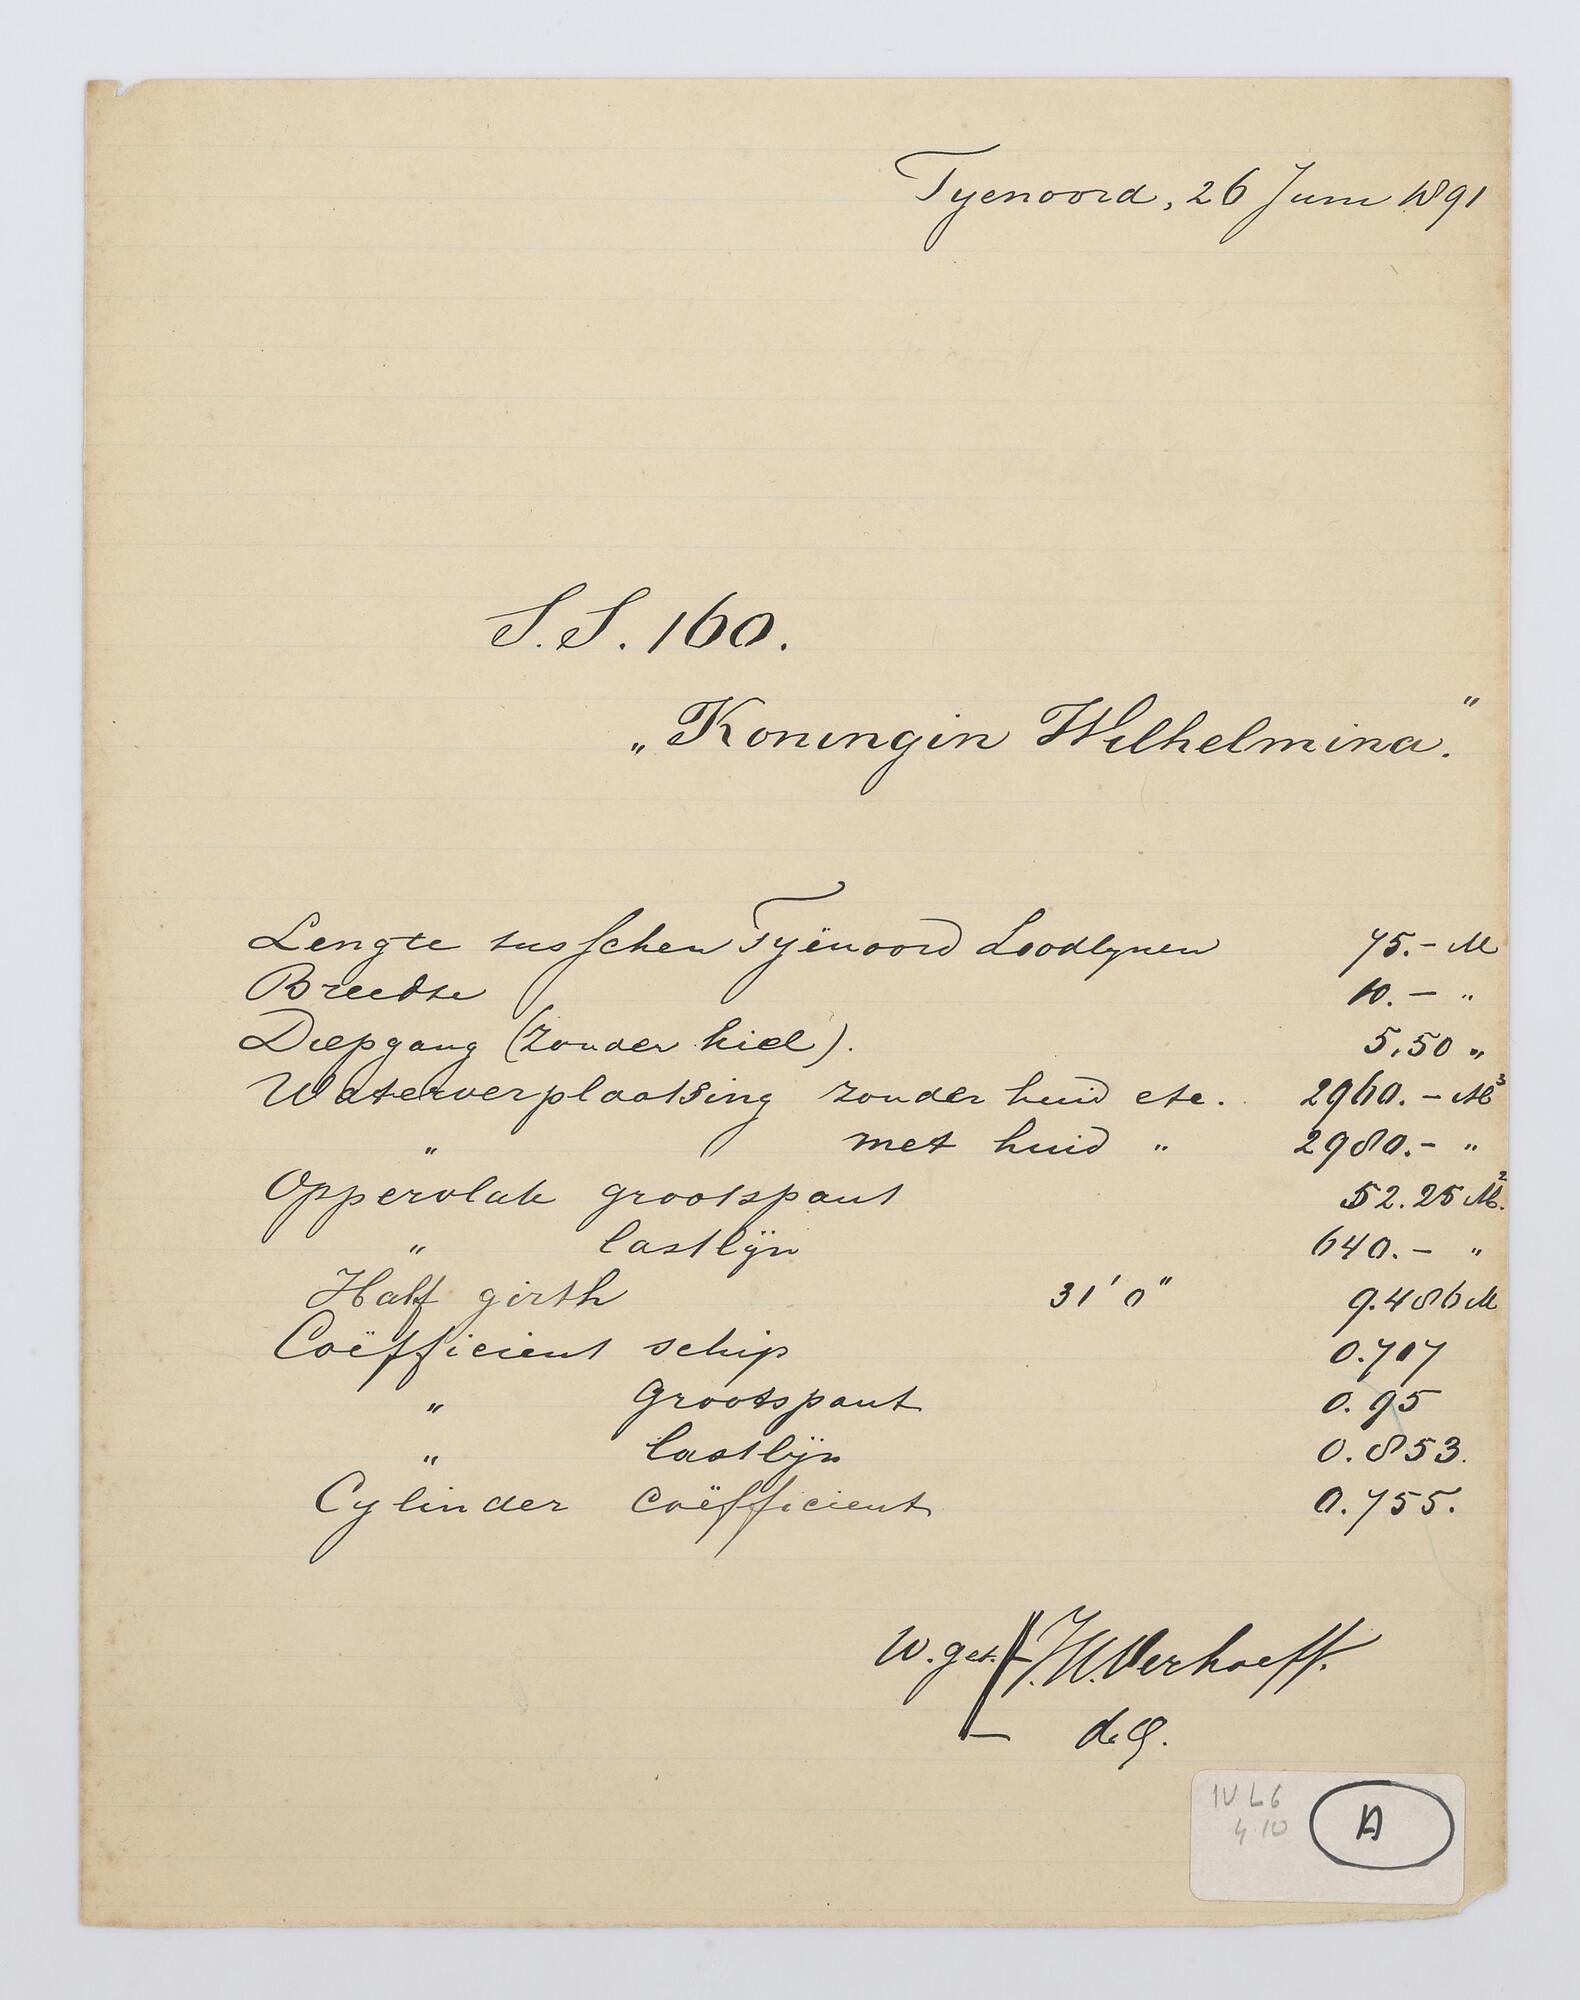 Fyenoord, 26 Juni 1891
S.S. 160.
„Koningin Wilhelmina."
Lengte tusschen Fyënoord Loodlynen 75.- M
Breedte 10.- "
Diepgang (zonder kiel). 5.50 "
Waterverplaatsing zonder huid etc. 2960.- M³
" met huid " 2980.- "
Oppervlak grootspant 52.25 M²
" lastlijn 640.- "
Half girth 31' 0" 9.486 M
Coëfficient schip 0.717
" Grootspant 0.95
" lastlijn 0.853.
Cylinder Coëfficient 0.755.
W. get. J.W. Verhoeff.
d.G.
IV L6
4 10
A